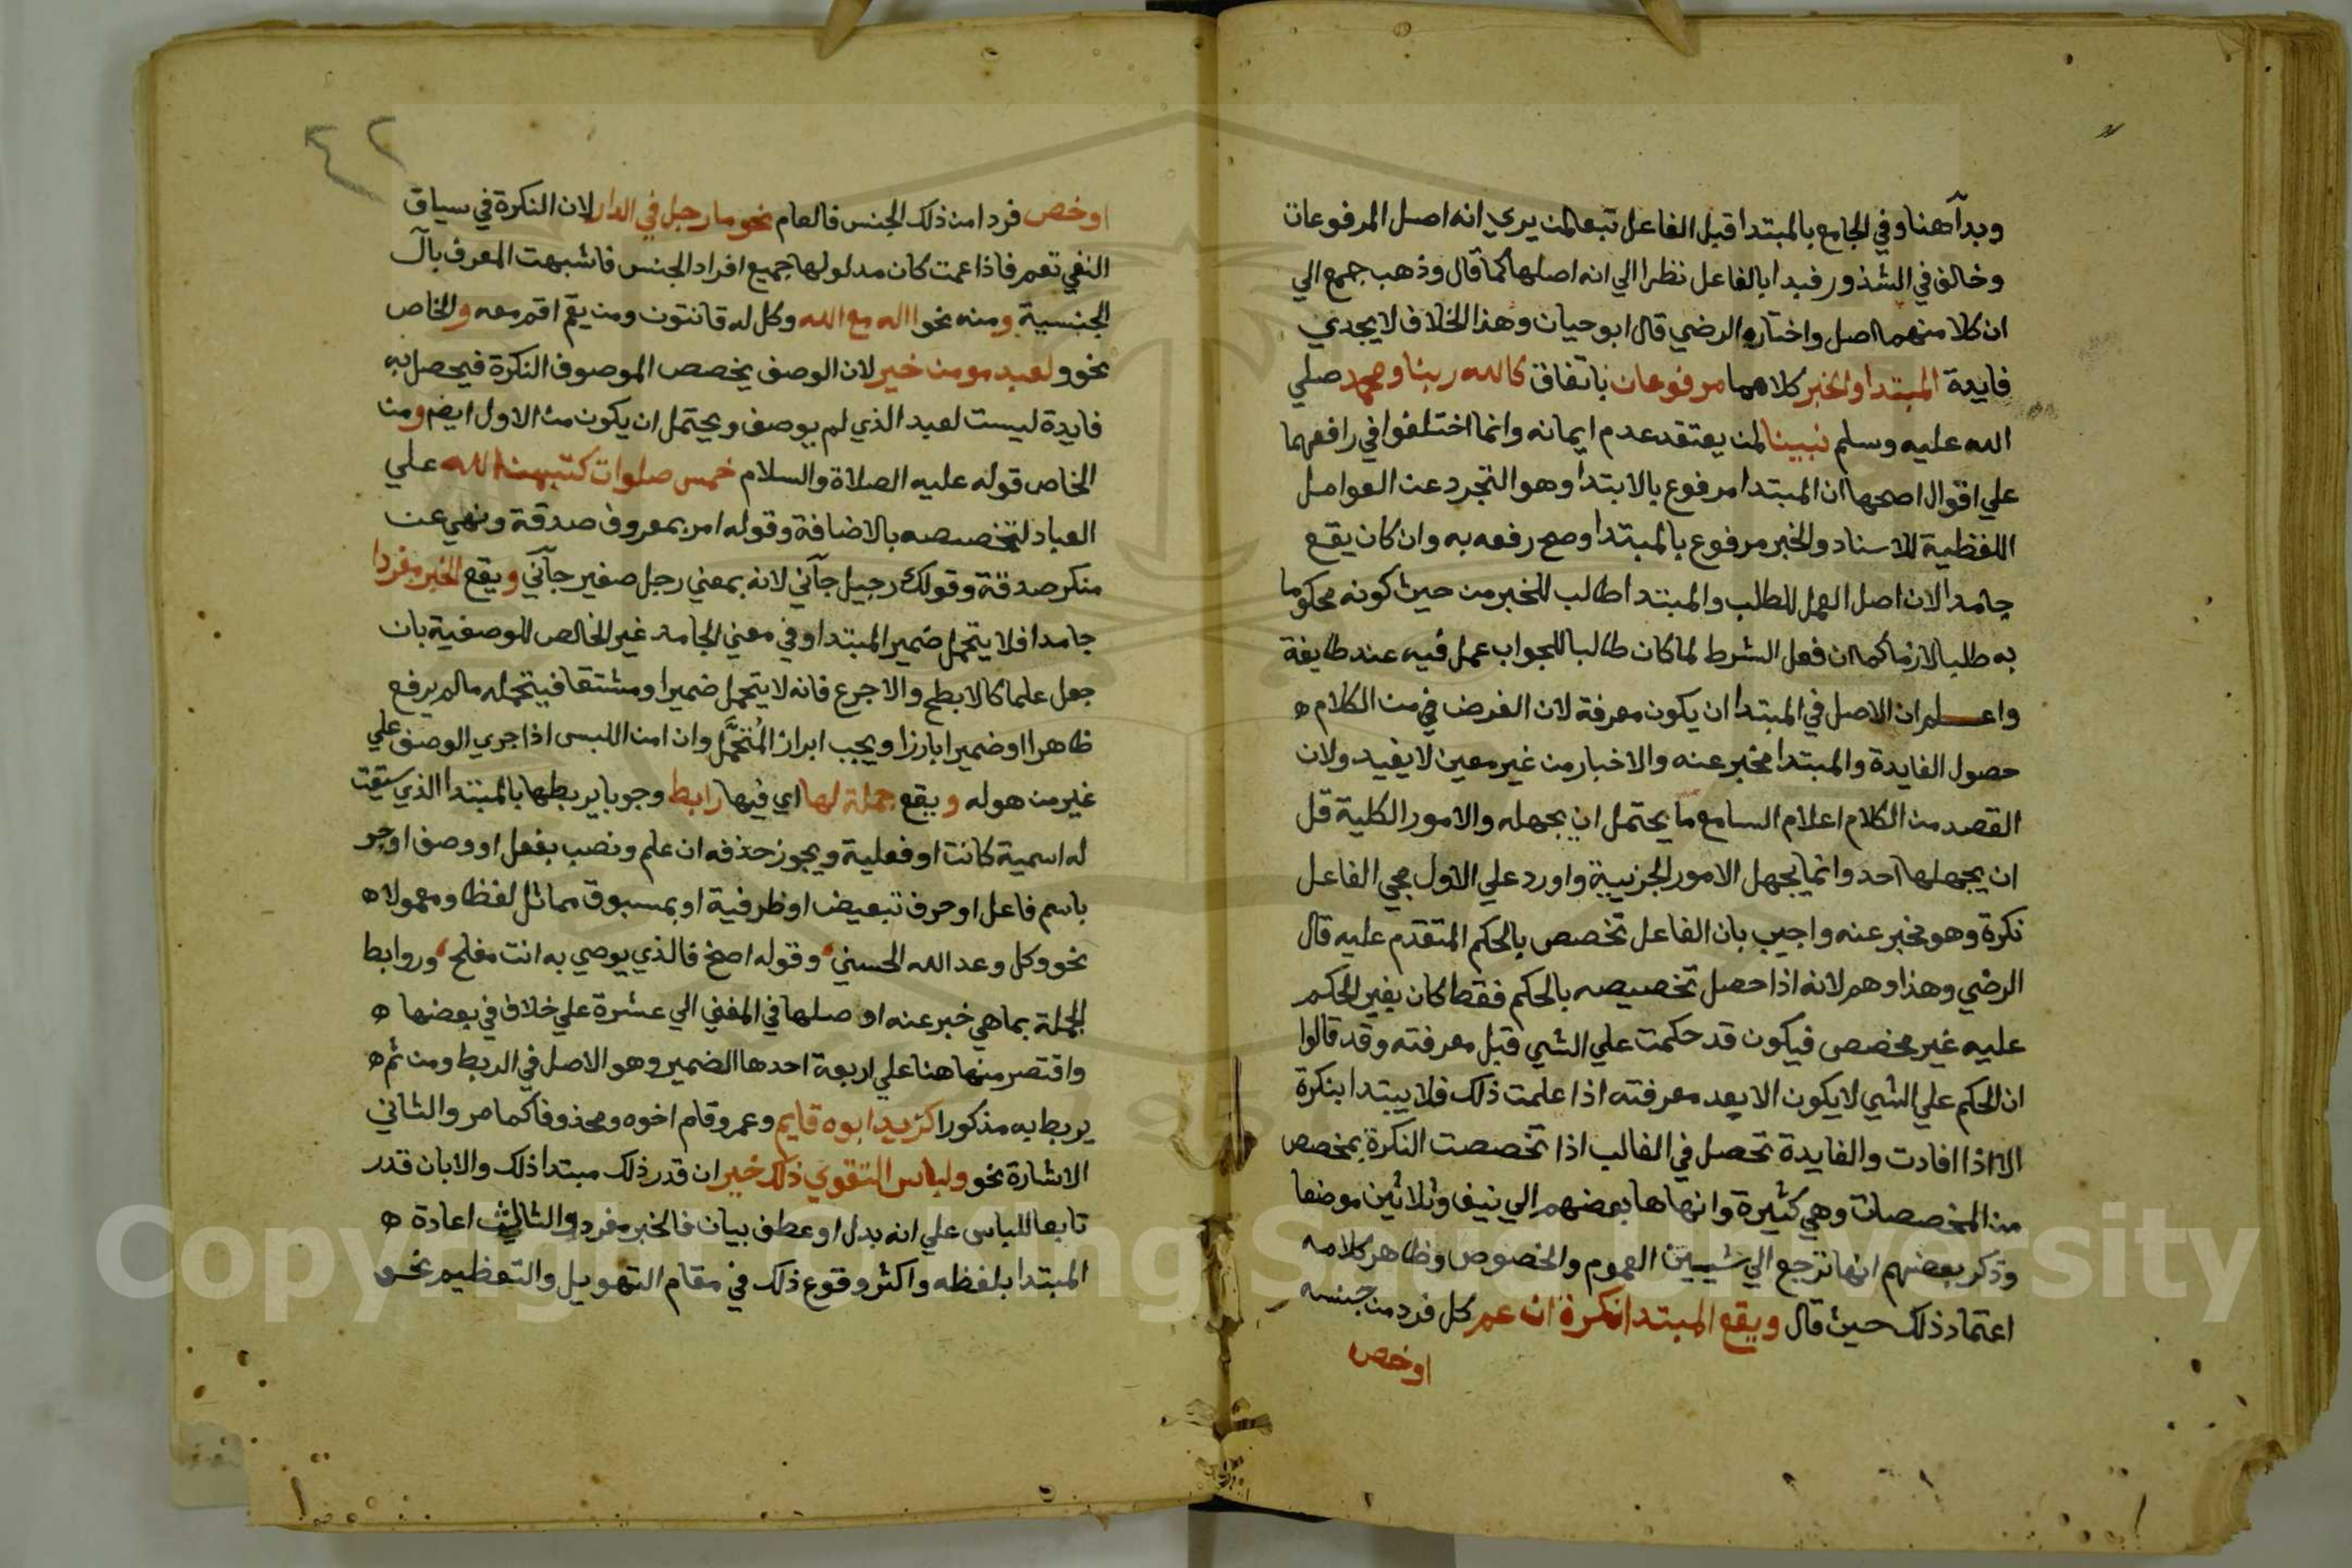 وبدآ هنا وفي الجامع بالمبتدا قبل الفاعل تبعا لمن يري انه اصل المرفوعات
وخالف في الشذور فبدا بالفاعل نظرا الي انه اصلها كما قال وذهب جمع الي
ان كلا منهما اصل واختاره الرضي قال ابو حيان وهذا الخلاف لا يجدي
فايدة المبتدا والخبر كلاهما مرفوعان باتفاق كالله ربنا ومحمد صلي
الله عليه وسلم نبينا لمن يعتقد عدم ايمانه وانما اختلفوا في رافعهما
علي اقوال اصحها ان المبتدا مرفوع بالابتدا وهو التجرد عن العوامل
اللفظية للاسناد والخبر مرفوع بالمبتدا وصح رفعه به وان كان يقع
جامدا لان اصل العمل للطلب والمبتدا طالب للخبر من حيث كونه محكوما
به طلبا لازما كما ان فعل الشرط لما كان طالبا للجواب عمل فيه عند طايفة
واعلم ان الاصل في المبتدا ان يكون معرفة لان الغرض من الكلام
حصول الفايدة والمبتدا مخبر عنه والاخبار من غير معين لا يفيد ولان
القصد من الكلام اعلام السامع ما يحتمل ان يجهله والامور الكلية قل
ان يجهلها احد وانما يجهل الامور الجزيية واورد علي الاول مجي الفاعل
نكرة وهو مخبر عنه واجيب بان الفاعل تخصص بالحكم المتقدم عليه قال
الرضي وهذا وهم لانه اذا حصل تخصيصه بالحكم فقط كان بغير الحكم
عليه غير مخصص فيكون قد حكمت علي الشي قبل معرفته وقد قالوا
ان الحكم علي الشي لا يكون الا بعد معرفته اذا علمت ذلك فلا يبتدا بنكرة
الا اذا افادت والفايدة تحصل في الغالب اذا تخصصت النكرة بمخصص
من المخصصات وهي كثيرة وانهاها بعضهم الي نيف وثلاثين موضعا
وذكر بعضهم انها ترجع الي شييين العموم والخصوص وظاهر كلامه
اعتماد ذلك حيث قال ويقع المبتدا نكرة ان عم كل فرد من جنسه
او خص
٤٢
او خص فردا من ذلك الجنس فالعام نحو ما رجل في الدار لان النكرة في سياق
النفي تعم فاذا عمت كان مدلولها جميع افراد الجنس فاشبهت المعرف بآل
الجنسية ومنه نحو االه مع الله وكل له قانتون ومن يقم اقم معه والخاص
نحو ولعبد مومن خير لان الوصف يخصص الموصوف النكرة فيحصل به
فايدة ليست لعبد الذي لم يوصف ويحتمل ان يكون من الاول ايضم ومن
الخاص قوله عليه الصلاة والسلام خمس صلوات كتبهن الله علي
العباد لتخصصه بالاضافة وقوله امر بمعروف صدقة ونهي عن
منكر صدقة وقولك رجيل جآني لانه بمعني رجل صغير جآني ويقع الخبر مفردا
جامدا فلا يتحمل ضمير المبتدا وفي معني الجامد غير الخالص للوصفية بان
جعل علما كالابطح والاجرع فانه لا يتحمل ضميرا ومشتقا فيتحمله ما لم يرفع
ظاهرا او ضميرا بارزا ويجب ابراز المُتحمَّل وان امن اللبس اذا جري الوصف علي
غير من هو له ويقع جملة لها اي فيها رابط وجوبا يربطها بالمبتدا الذي سيقت
له اسمية كانت او فعلية ويجوز حذفه ان علم ونصب بفعل او وصف او جر
باسم فاعل او حرف تبعيض او ظرفية او بمسبوق مماثل لفظا ومعمولا
نحو وكل وعد الله الحسني وقوله اصخ فالذي يوصي به انت مفلح وروابط
الجملة بما هي خبر عنه اوصلها في المغني الي عشرة علي خلاف في بعضها
واقتصر منها هنا علي اربعة احدها الضمير وهو الاصل في الربط ومن ثم
يربط به مذكورا كزيد ابوه قايم وعمرو قام اخوه ومحذوفا كما مر والثاني
الاشارة نحو ولباس التقوي ذلك خير ان قدر ذلك مبتدا ذلك والا بان قدر
تابعا للباس علي انه بدل او عطف بيان فالخبر مفرد والثالث اعادة
المبتدا بلفظه واكثر وقوع ذلك في مقام التهويل والتعظيم نحو
Copyright © King Saud University